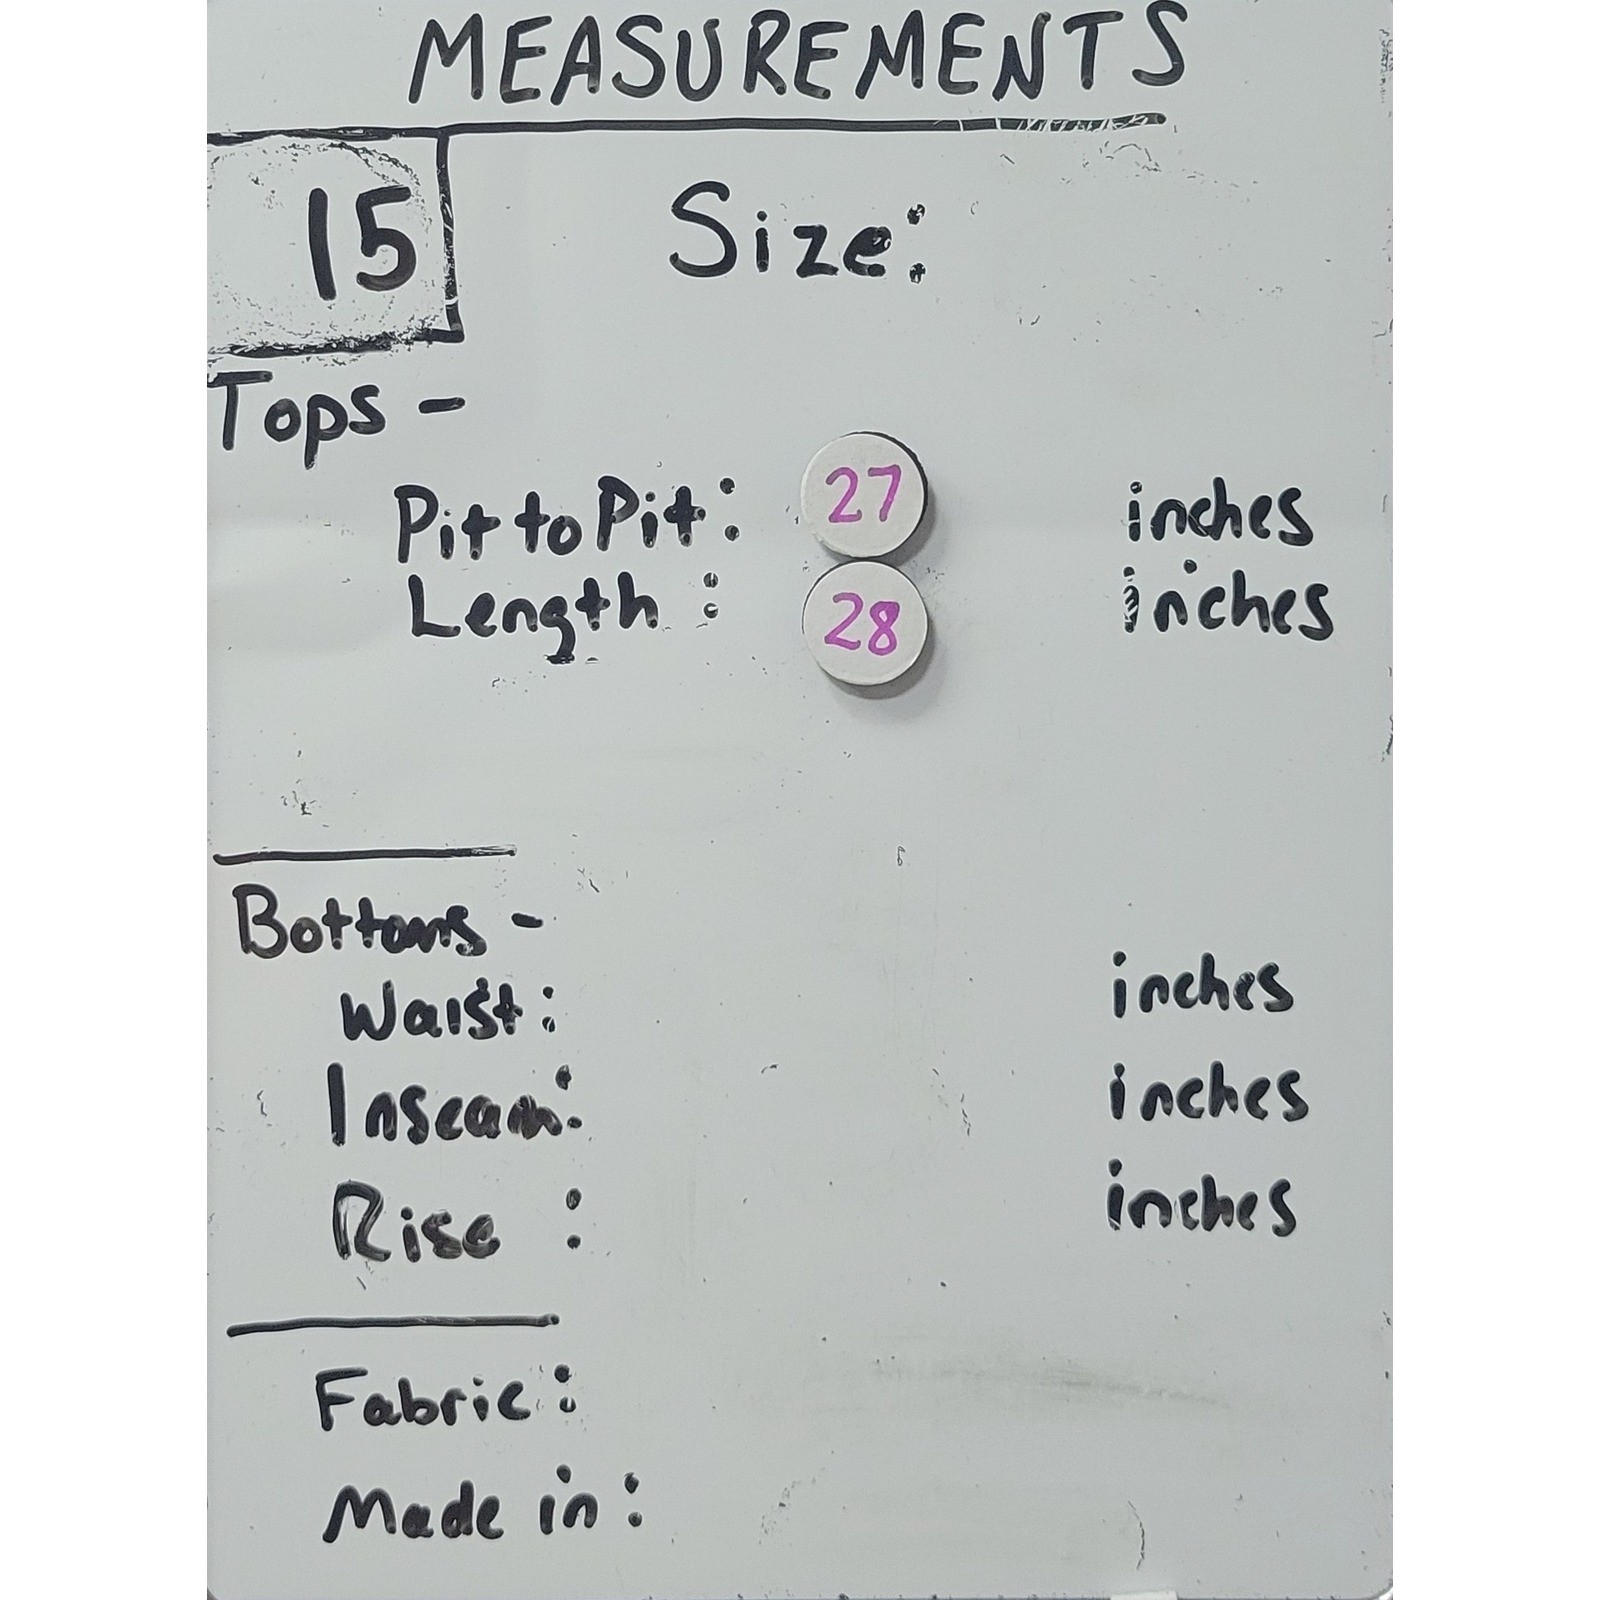 MEASUREMENTS
15 Size:
Tops -
Pit to Pit: 27 inches
Length: 28 inches
Bottoms -
Waist: inches
Inseam: inches
Rise : inches
Fabric:
Made in: